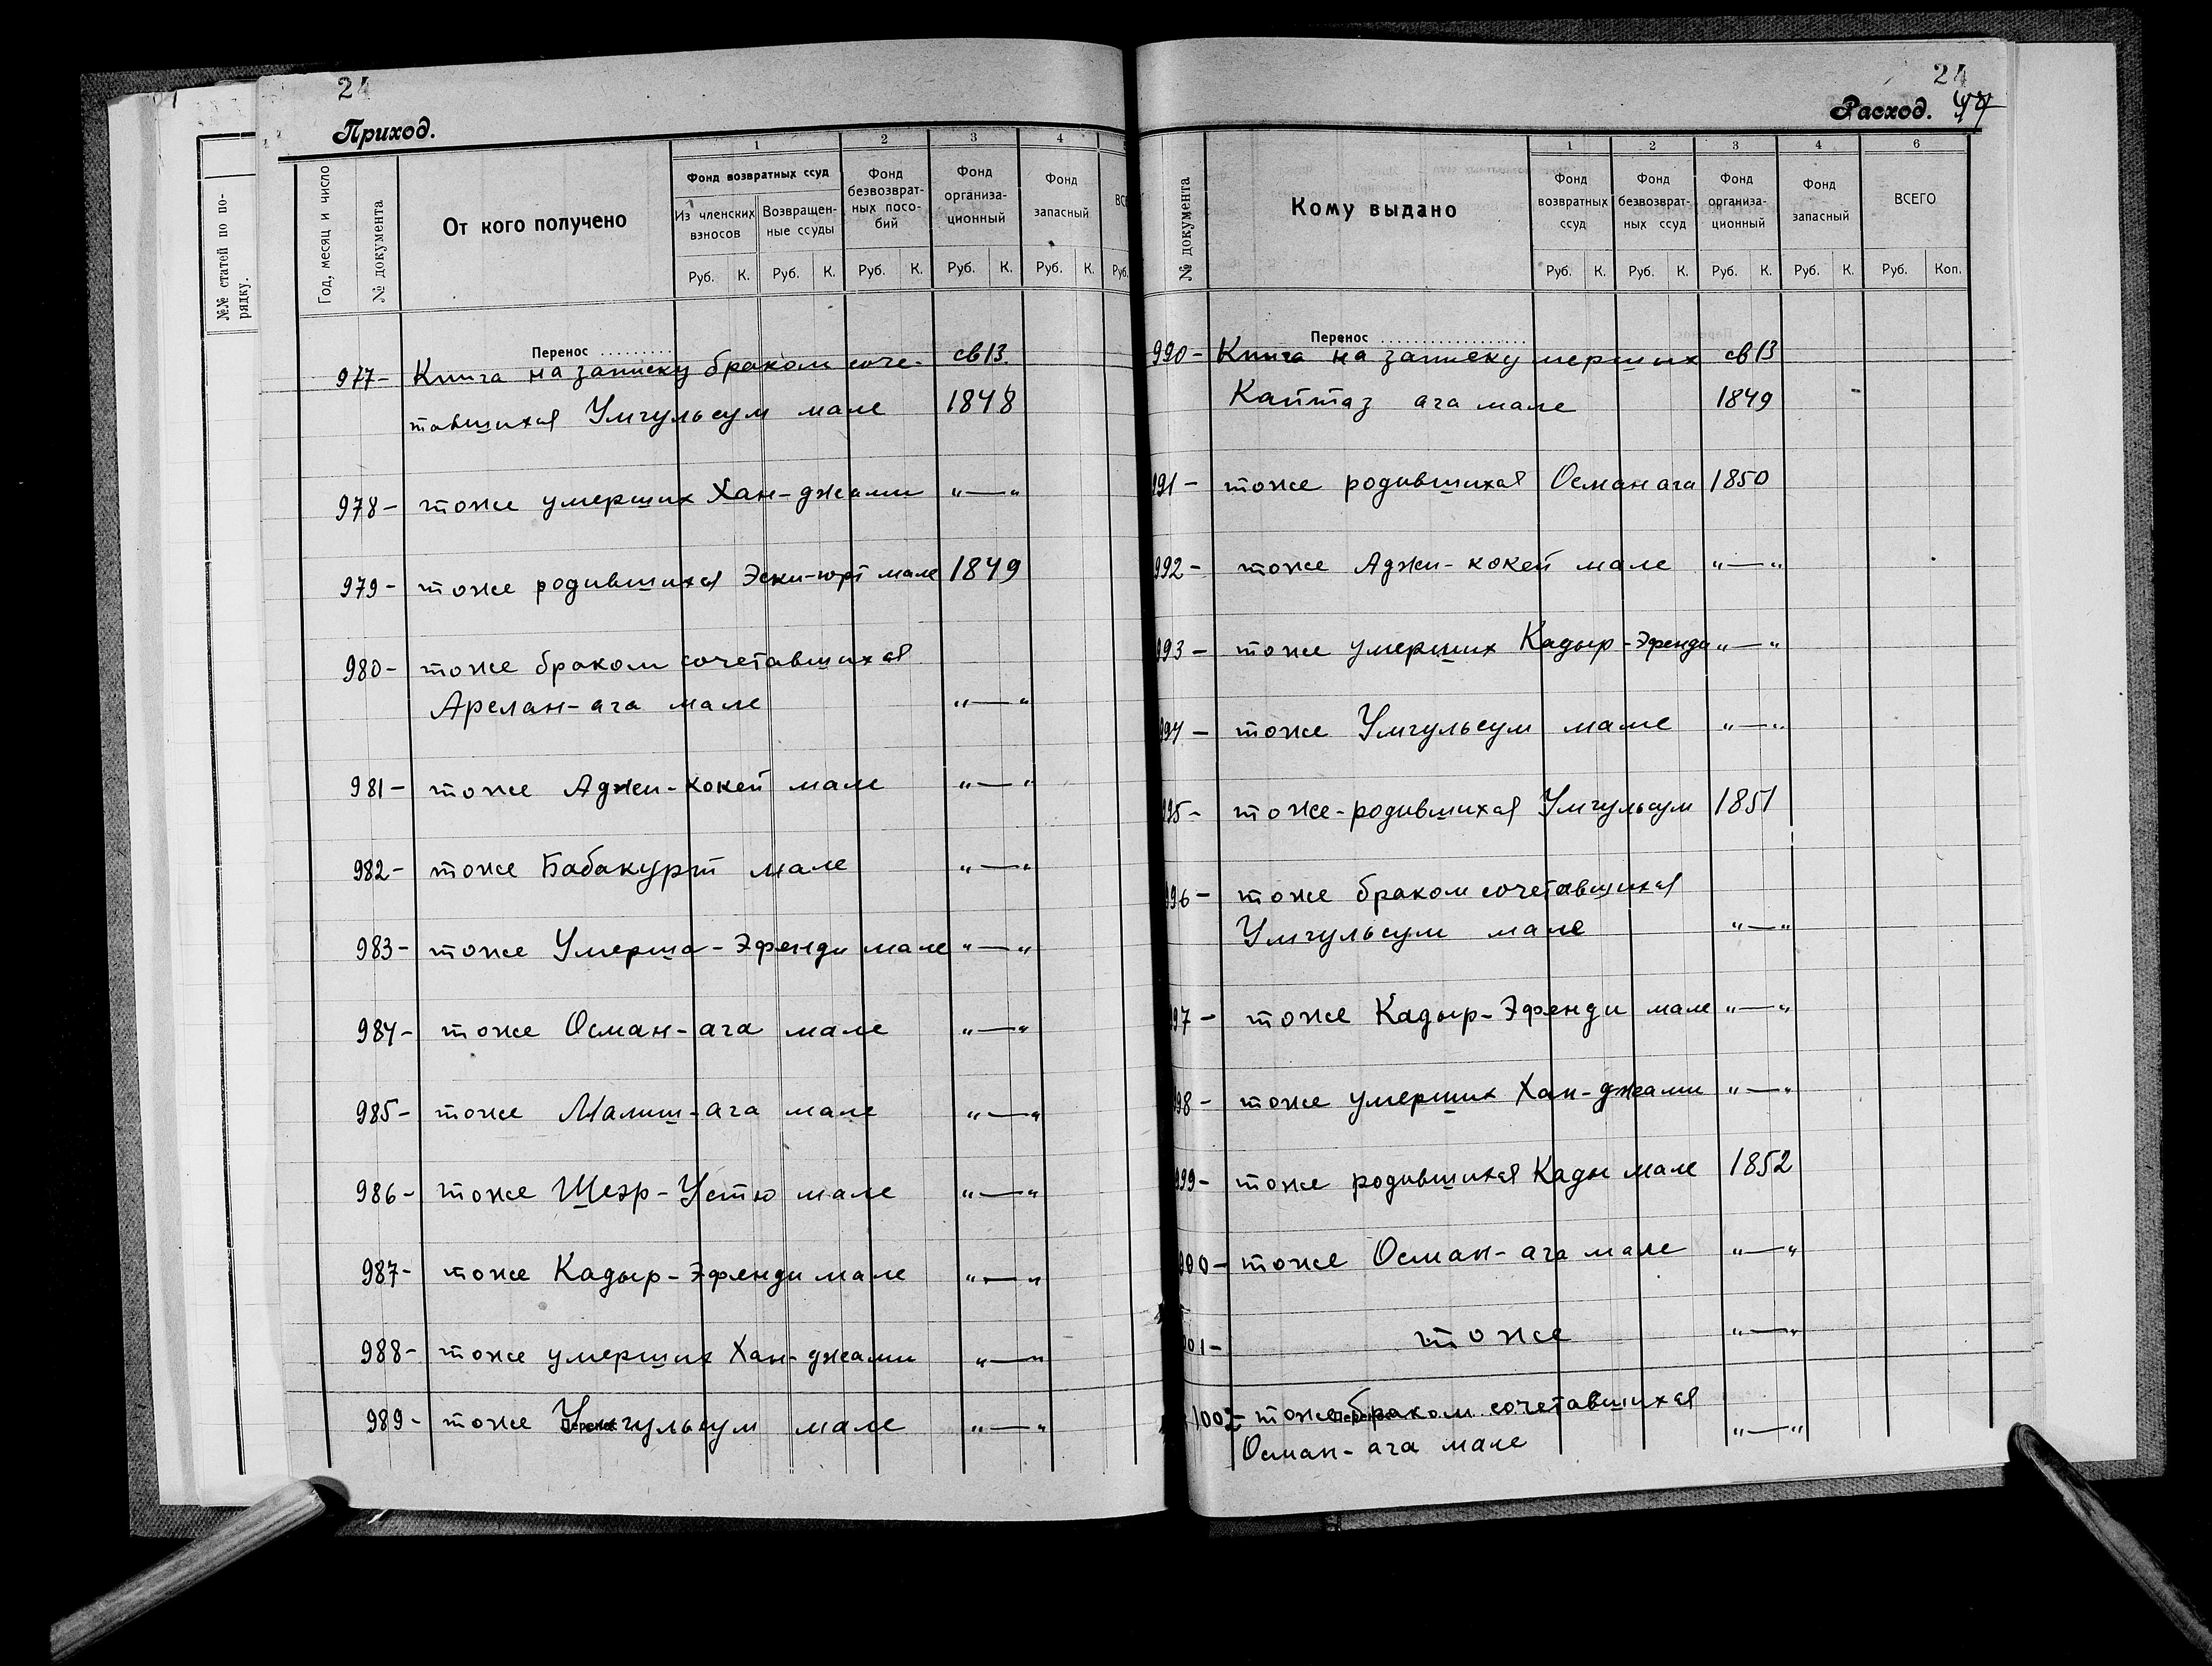 24
Приход.
№№ статей по порядку.
Год, месяц и число
№ документа
От кого получено
1
Фонд возвратных ссуд
Из членских взносов
Возвращенные ссуды
2
Фонд безвозвратных пособий
3
Фонд организационный
4
Фонд запасный
Руб. К. Руб. К. Руб. К. Руб. К. Руб. К. Руб.
Перенос
977- Книга на записку браком соче- св 13.
тавшихся Умгульсум мале 1848
978- тоже умерших Хан-джами "—"
979- тоже родившихся Эски-юрт мале 1849
980- тоже браком сочетавшихся
Арслан-ага мале "—"
981- тоже Аджи-кокей мале "—"
982- тоже Бабакурт мале "—"
983- тоже Умерша-Эфенди мале "—"
984- тоже Осман-ага мале "—"
985- тоже Малиш-ага мале "—"
986- тоже Шеэр-Устю мале "—"
987- тоже Кадыр-Эфенди мале "—"
988- тоже умерших Хан-джами "—"
989- тоже Умгульсум мале "—"
Перенос
24
Расход.
№ документа
Кому выдано
1
Фонд возвратных ссуд
2
Фонд безвозвратных ссуд
3
Фонд организационный
4
Фонд запасный
6
ВСЕГО
Руб. К. Руб. К. Руб. К. Руб. К. Руб. Коп.
Перенос
990- Книга на записку мерших св 13
Каптаз ага мале 1849
991- тоже родившихся Осман ага 1850
992- тоже Аджи-кокей мале "—"
993- тоже умерших Кадыр-Эфенди "—"
994- тоже Умгульсум мале "—"
995- тоже-родившихся Умгульсум 1851
996- тоже браком сочетавшихся
Умгульсум мале "—"
997- тоже Кадыр-Эфенди мале "—"
998- тоже умерших Хан-джами "—"
999- тоже родившихся Кады мале 1852
000- тоже Осман-ага мале "—"
001- тоже "—"
1002- тоже браком сочетавшихся
Осман-ага мале "—"